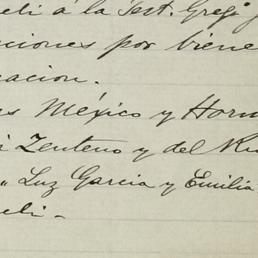 eli á la Test. Greg.
ciones por biene
acion.
es México y Horn
i Zenteno y del Ri
" Luz Garcia y Emilia
eli -